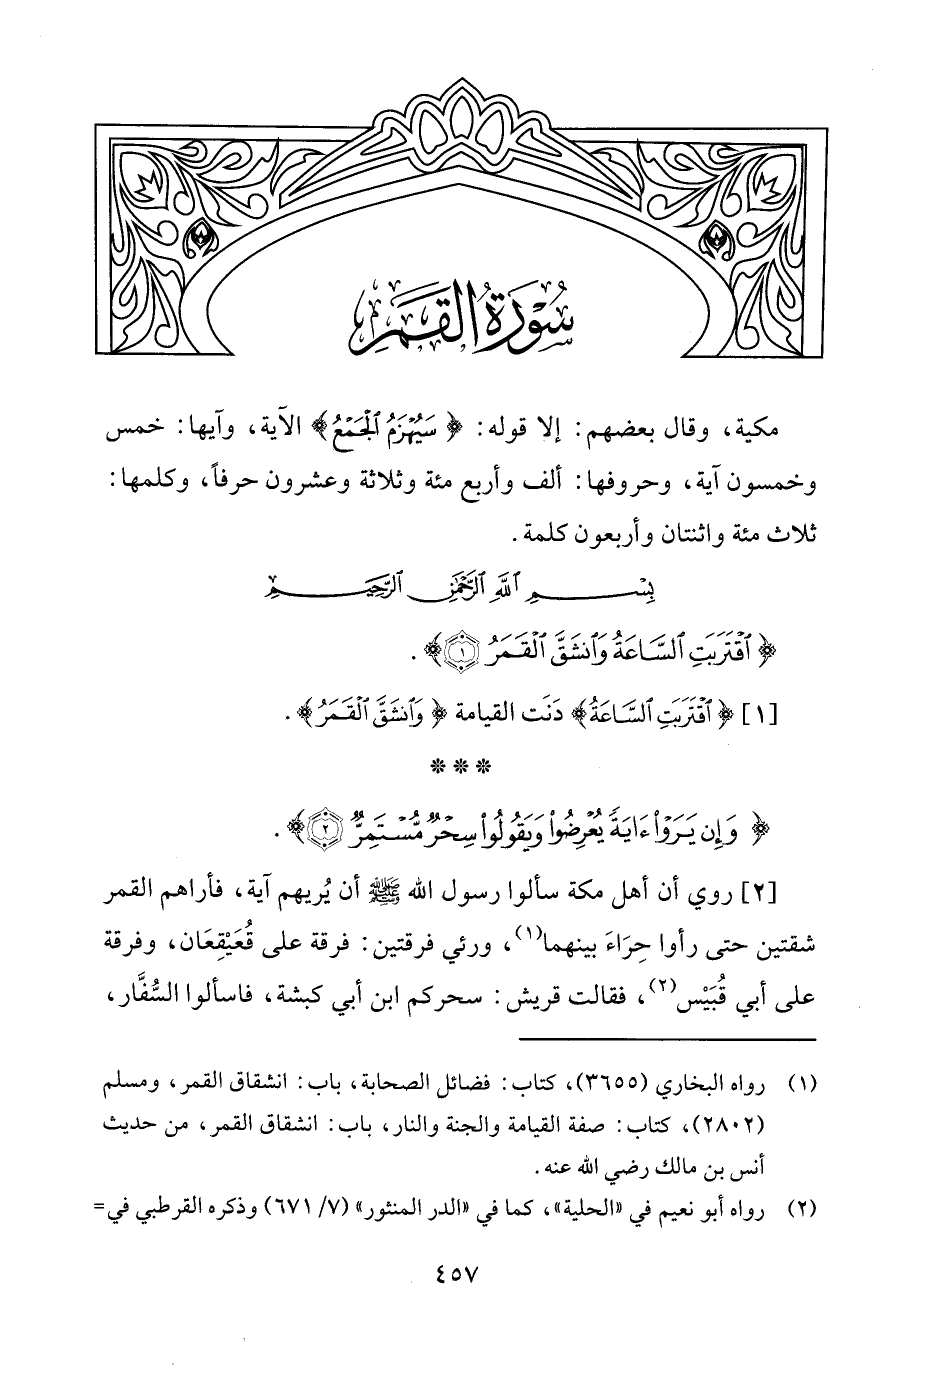 سُورَةُ القَمَر
مكية، وقال بعضهم: إلا قوله: ﴿سَيُهْزَمُ ٱلْجَمْعُ﴾ الآية، وآيها: خمس
وخمسون آية، وحروفها: ألف وأربع مئة وثلاثة وعشرون حرفاً، وكلمها:
ثلاث مئة واثنتان وأربعون كلمة.
بِسْمِ ٱللَّهِ ٱلرَّحْمَٰنِ ٱلرَّحِيمِ
﴿ٱقْتَرَبَتِ ٱلسَّاعَةُ وَٱنشَقَّ ٱلْقَمَرُ ١﴾.
[١] ﴿ٱقْتَرَبَتِ ٱلسَّاعَةُ﴾ دَنَت القيامة ﴿وَٱنشَقَّ ٱلْقَمَرُ﴾.
❊ ❊ ❊
﴿وَإِن يَرَوْا۟ ءَايَةً يُعْرِضُوا۟ وَيَقُولُوا۟ سِحْرٌ مُّسْتَمِرٌّ ٢﴾.
[٢] روي أن أهل مكة سألوا رسول الله ﷺ أن يُريهم آية، فأراهم القمر
شقتين حتى رأوا حِرَاءَ بينهما(١)، ورئي فرقتين: فرقة على قُعَيْقِعَان، وفرقة
على أبي قُبَيْس(٢)، فقالت قريش: سحركم ابن أبي كبشة، فاسألوا السُّفَّار،
(١) رواه البخاري (٣٦٥٥)، كتاب: فضائل الصحابة، باب: انشقاق القمر، ومسلم
(٢٨٠٢)، كتاب: صفة القيامة والجنة والنار، باب: انشقاق القمر، من حديث
أنس بن مالك رضي الله عنه.
(٢) رواه أبو نعيم في «الحلية»، كما في «الدر المنثور» (٧/ ٦٧١) وذكره القرطبي في=
٤٥٧